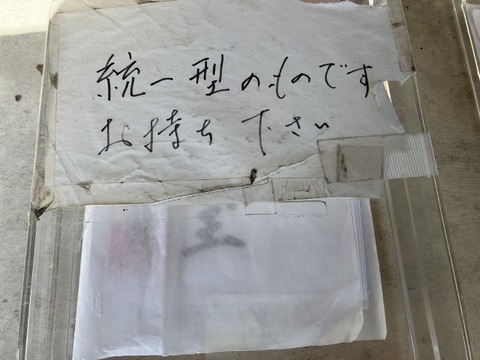 統一型のものです
お持ち下さい